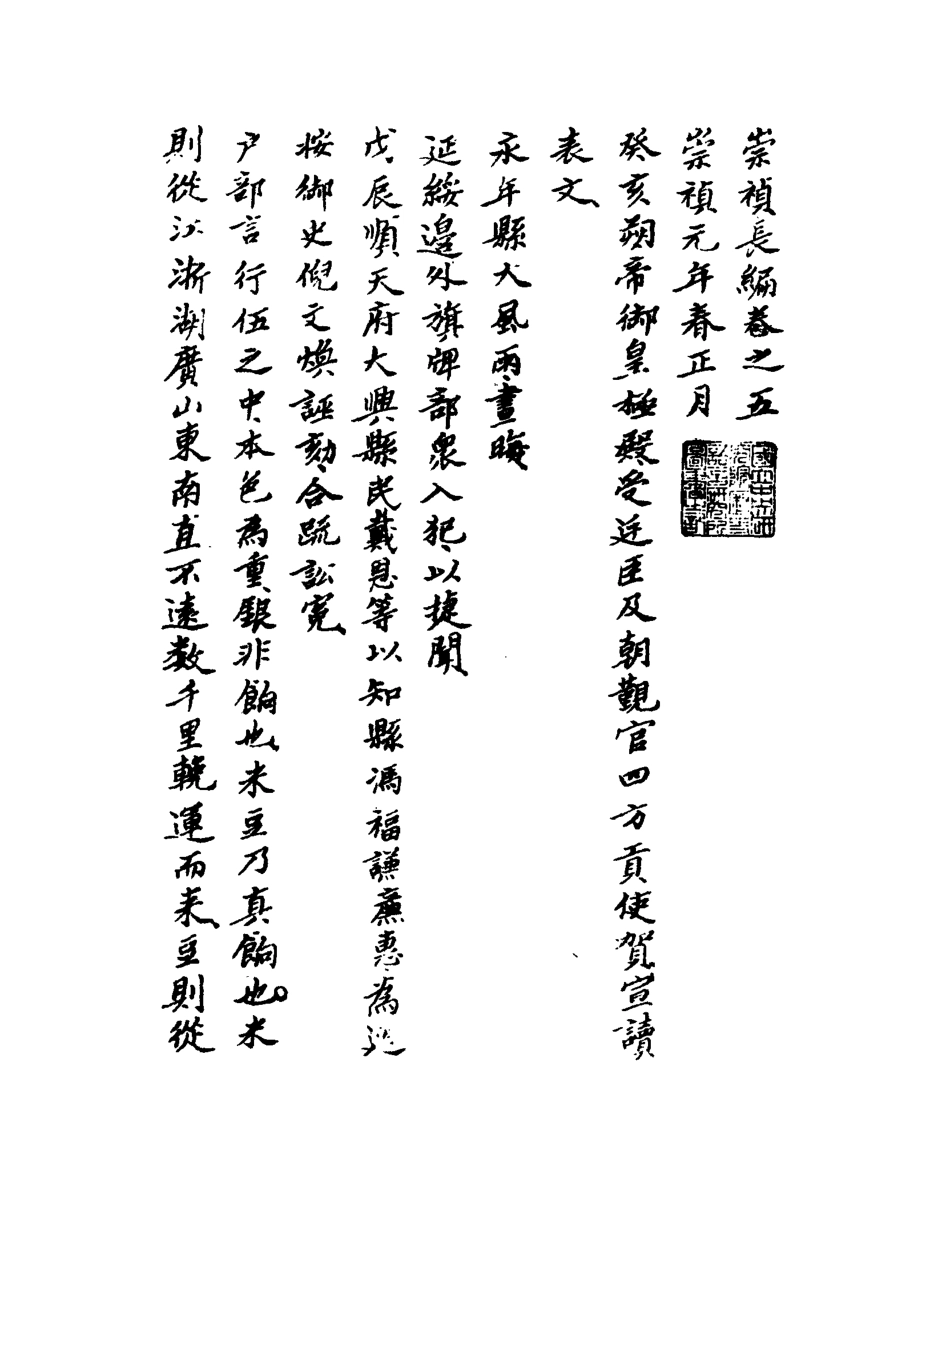 崇禎長編卷之五
崇禎元年春正月
癸亥朔帝御皇極殿受廷臣及朝覲官四方貢使賀宣讀
表文、
永年縣大風雨晝晦
延綏邊外旗牌部衆入犯、以捷聞、
戊辰順天府大興縣民戴恩等以知縣馮福謙廉惠為巡
按御史倪文煥誣劾、合疏訟寃、
户部言行伍之中、本色為重、銀非餉也、米豆乃真餉也。米
則從江浙湖廣山東南直不遠數千里輓運而来、豆則從